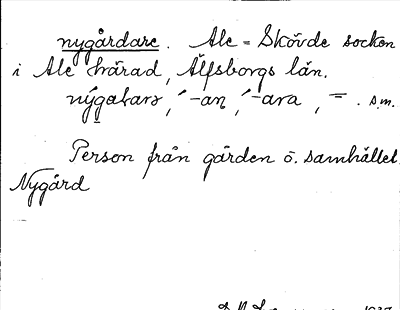 nygårdare. Ale-Skövde socken
i Ale härad, Älfsborgs län.
nýgaɫarə, ´-an, ´-ara, =. s.m.
Person från gården o. samhället
Nygård